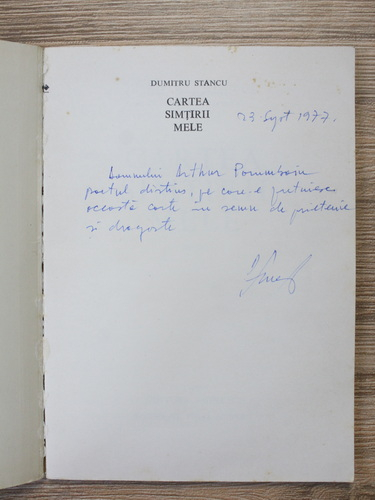 DUMITRU STANCU
CARTEA
SIMȚIRII
MELE
23 Sept 1977.
Domnului Arthur Porumboiu
poetul distins, pe care-l prețuiesc
această carte în semn de prietenie
și dragoste